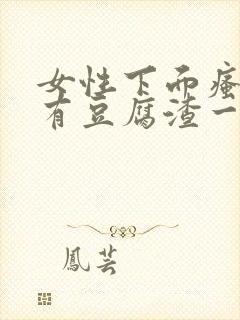 女性下面瘙
有豆腐渣一
鳳芸